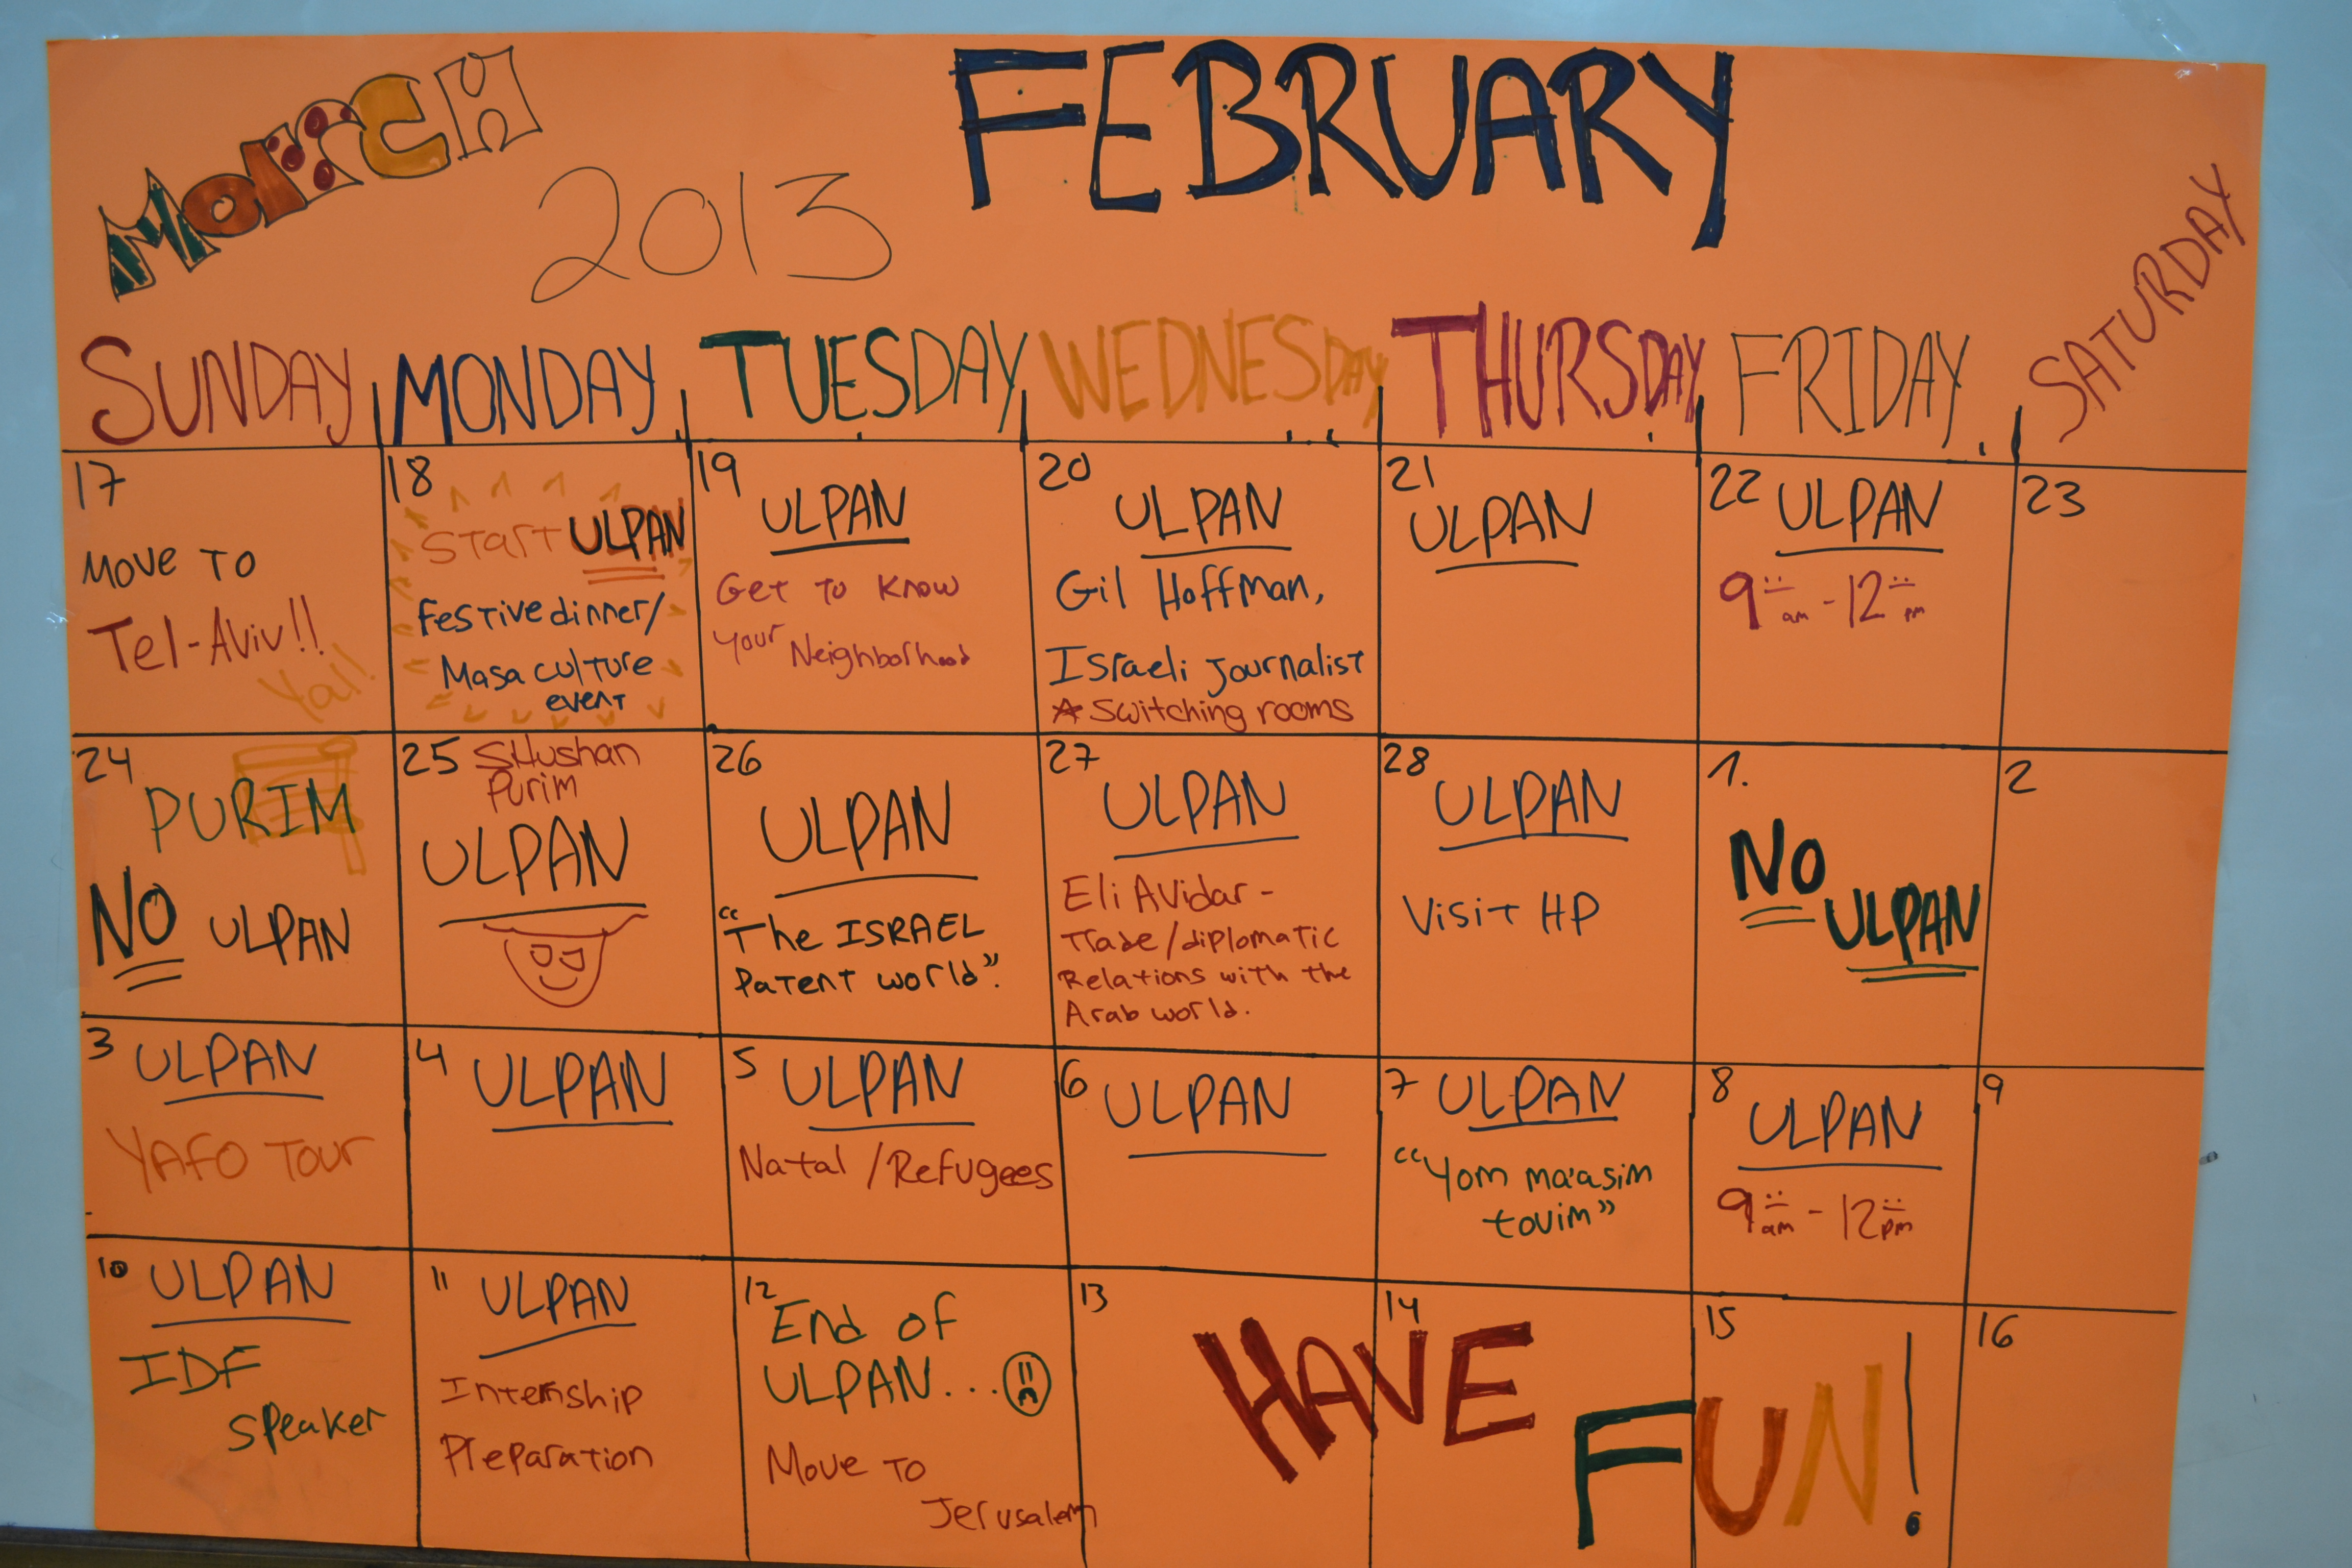 March
2013
FEBRUARY
SUNDAY
MONDAY
TUESDAY
WEDNESDAY
THURSDAY
FRIDAY
SATURDAY
17
Move to
Tel-Aviv!!
Yai!
18
Start ULPAN
Festive dinner/
Masa culture
event
19
ULPAN
Get to know
your Neighborhood
20
ULPAN
Gil Hoffman,
Israeli journalist
Switching rooms
21
ULPAN
22 ULPAN
9:00 am - 12:00 pm
23
24
PURIM
NO ULPAN
25 SHushan
Purim
ULPAN
26
ULPAN
"The ISRAEL
Patent world".
27
ULPAN
Eli Avidar -
Trade/diplomatic
Relations with the
Arab world.
28
ULPAN
Visit HP
1.
No
ULPAN
2
3 ULPAN
YAFO TOUR
4 ULPAN
5 ULPAN
Natal / Refugees
6 ULPAN
7 ULPAN
"Yom ma'asim
tovim"
8
ULPAN
9:00 am - 12:00 pm
9
10 ULPAN
IDF
speaker
11 ULPAN
Internship
Preparation
12
End of
ULPAN...
Move to
Jerusalem
13
14
15
16
HAVE
FUN!